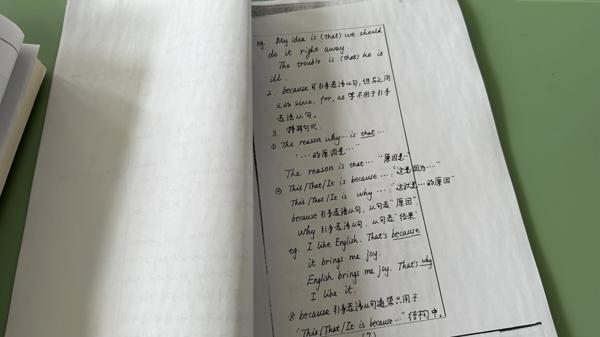 eg. My idea is (that) we should
do it right away.
The trouble is (that) he is
ill.
2. because 可引导表语从句,但与之同
义的 since, for, as 等不用于引导
表语从句。
3. 特殊句式
① The reason why... is that...
"...的原因是..."
The reason is that... "原因是..."
② This/That/It is because ...: "这是因为..."
This/That/It is why ...: "这就是...的原因"
because 引导表语从句,从句表"原因"
why 引导表语从句,从句表"结果"
eg. I like English. That's because
it brings me joy.
English brings me joy. That's why
I like it.
※ because 引导表语从句通常只用于
"This/That/It is because..." 结构中。
(7)